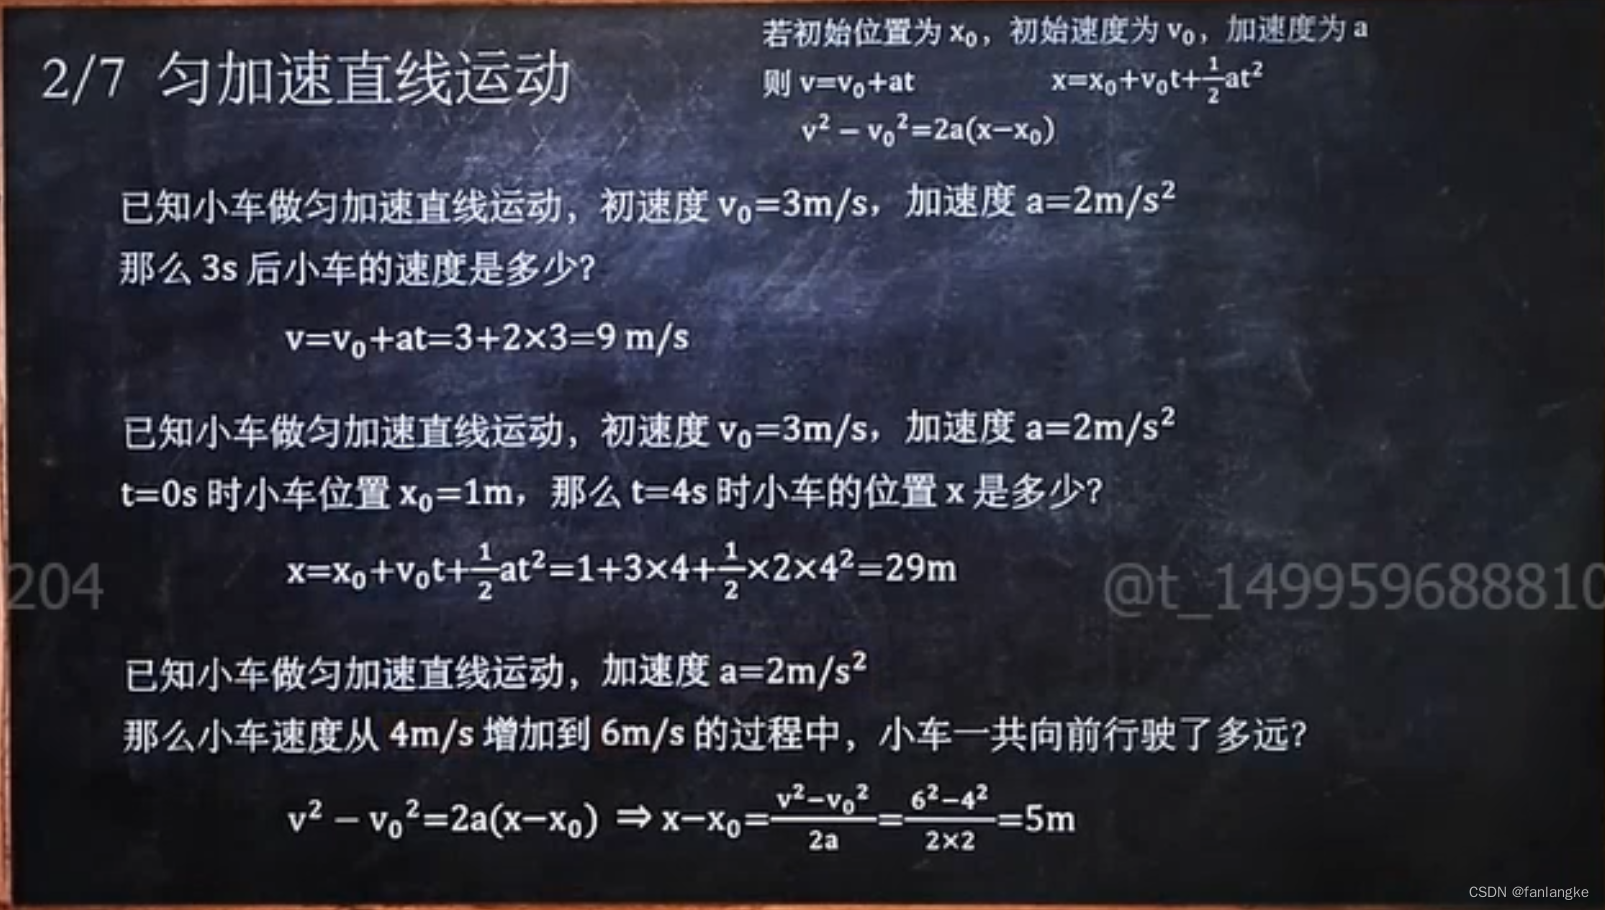 2/7 匀加速直线运动
若初始位置为 x₀，初始速度为 v₀，加速度为 a
则 v=v₀+at x=x₀+v₀t+½at²
v² − v₀²=2a(x−x₀)
已知小车做匀加速直线运动，初速度 v₀=3m/s，加速度 a=2m/s²
那么 3s 后小车的速度是多少？
v=v₀+at=3+2×3=9 m/s
已知小车做匀加速直线运动，初速度 v₀=3m/s，加速度 a=2m/s²
t=0s 时小车位置 x₀=1m，那么 t=4s 时小车的位置 x 是多少？
x=x₀+v₀t+½at²=1+3×4+½×2×4²=29m
204
@t_149959688810
已知小车做匀加速直线运动，加速度 a=2m/s²
那么小车速度从 4m/s 增加到 6m/s 的过程中，小车一共向前行驶了多远？
v² − v₀²=2a(x−x₀) ⇒ x−x₀=(v²−v₀²)/2a=(6²−4²)/2×2=5m
CSDN @fanlangke